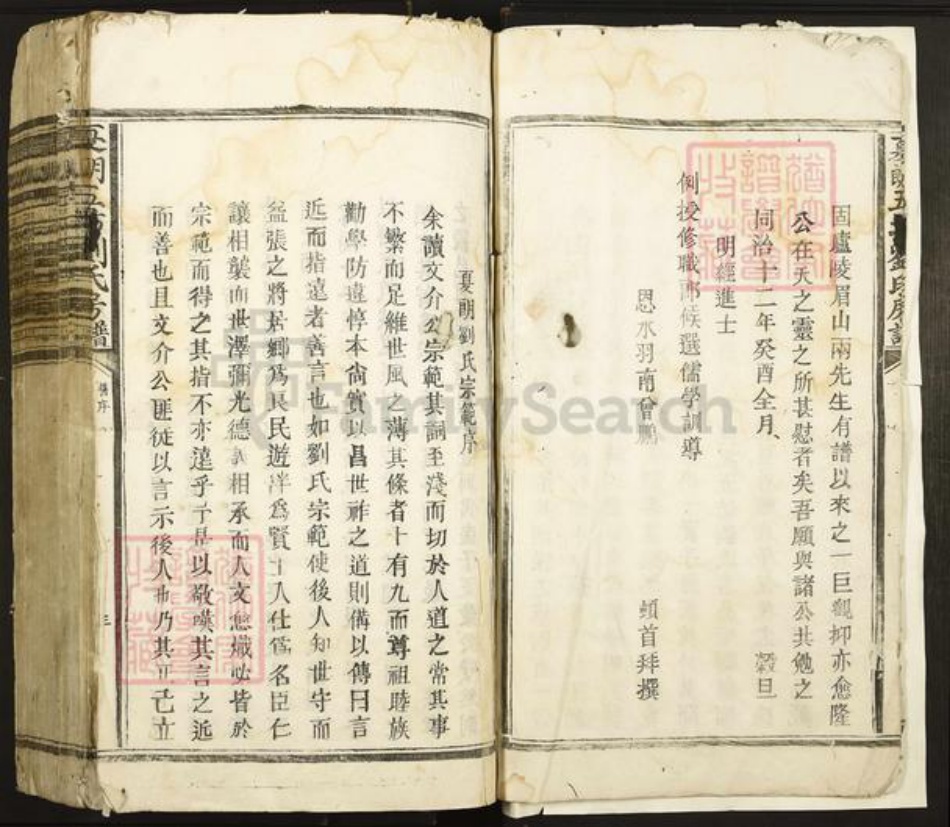 固廬陵眉山兩先生有譜以來之一巨觀抑亦愈隆
公在天之靈之所甚慰者矣吾願與諸公共勉之
同治十二年癸酉全月、穀旦
明經進士
例授修職郎候選儒學訓導
恩水羽南曾鵬 頓首拜撰
夏朗劉氏宗範序
余讀文介公宗範其詞至淺而切於人道之常其事
不繁而足維世風之薄其條者十有九而尊祖睦族
勸學防違惇本尙實以昌世祚之道則備以傳曰言
近而指遠者善言也如劉氏宗範使後人知世守而
益張之將居鄉爲良民遊泮爲賢士入仕爲名臣仁
讓相襲而世澤彌光德義相承而人文愈熾必皆於
宗範而得之其指不亦遠乎于是以敬嘆其言之近
而善也且文介公匪徒以言示後人也乃其正己立
劉氏房譜
舊序
三
FamilySearch